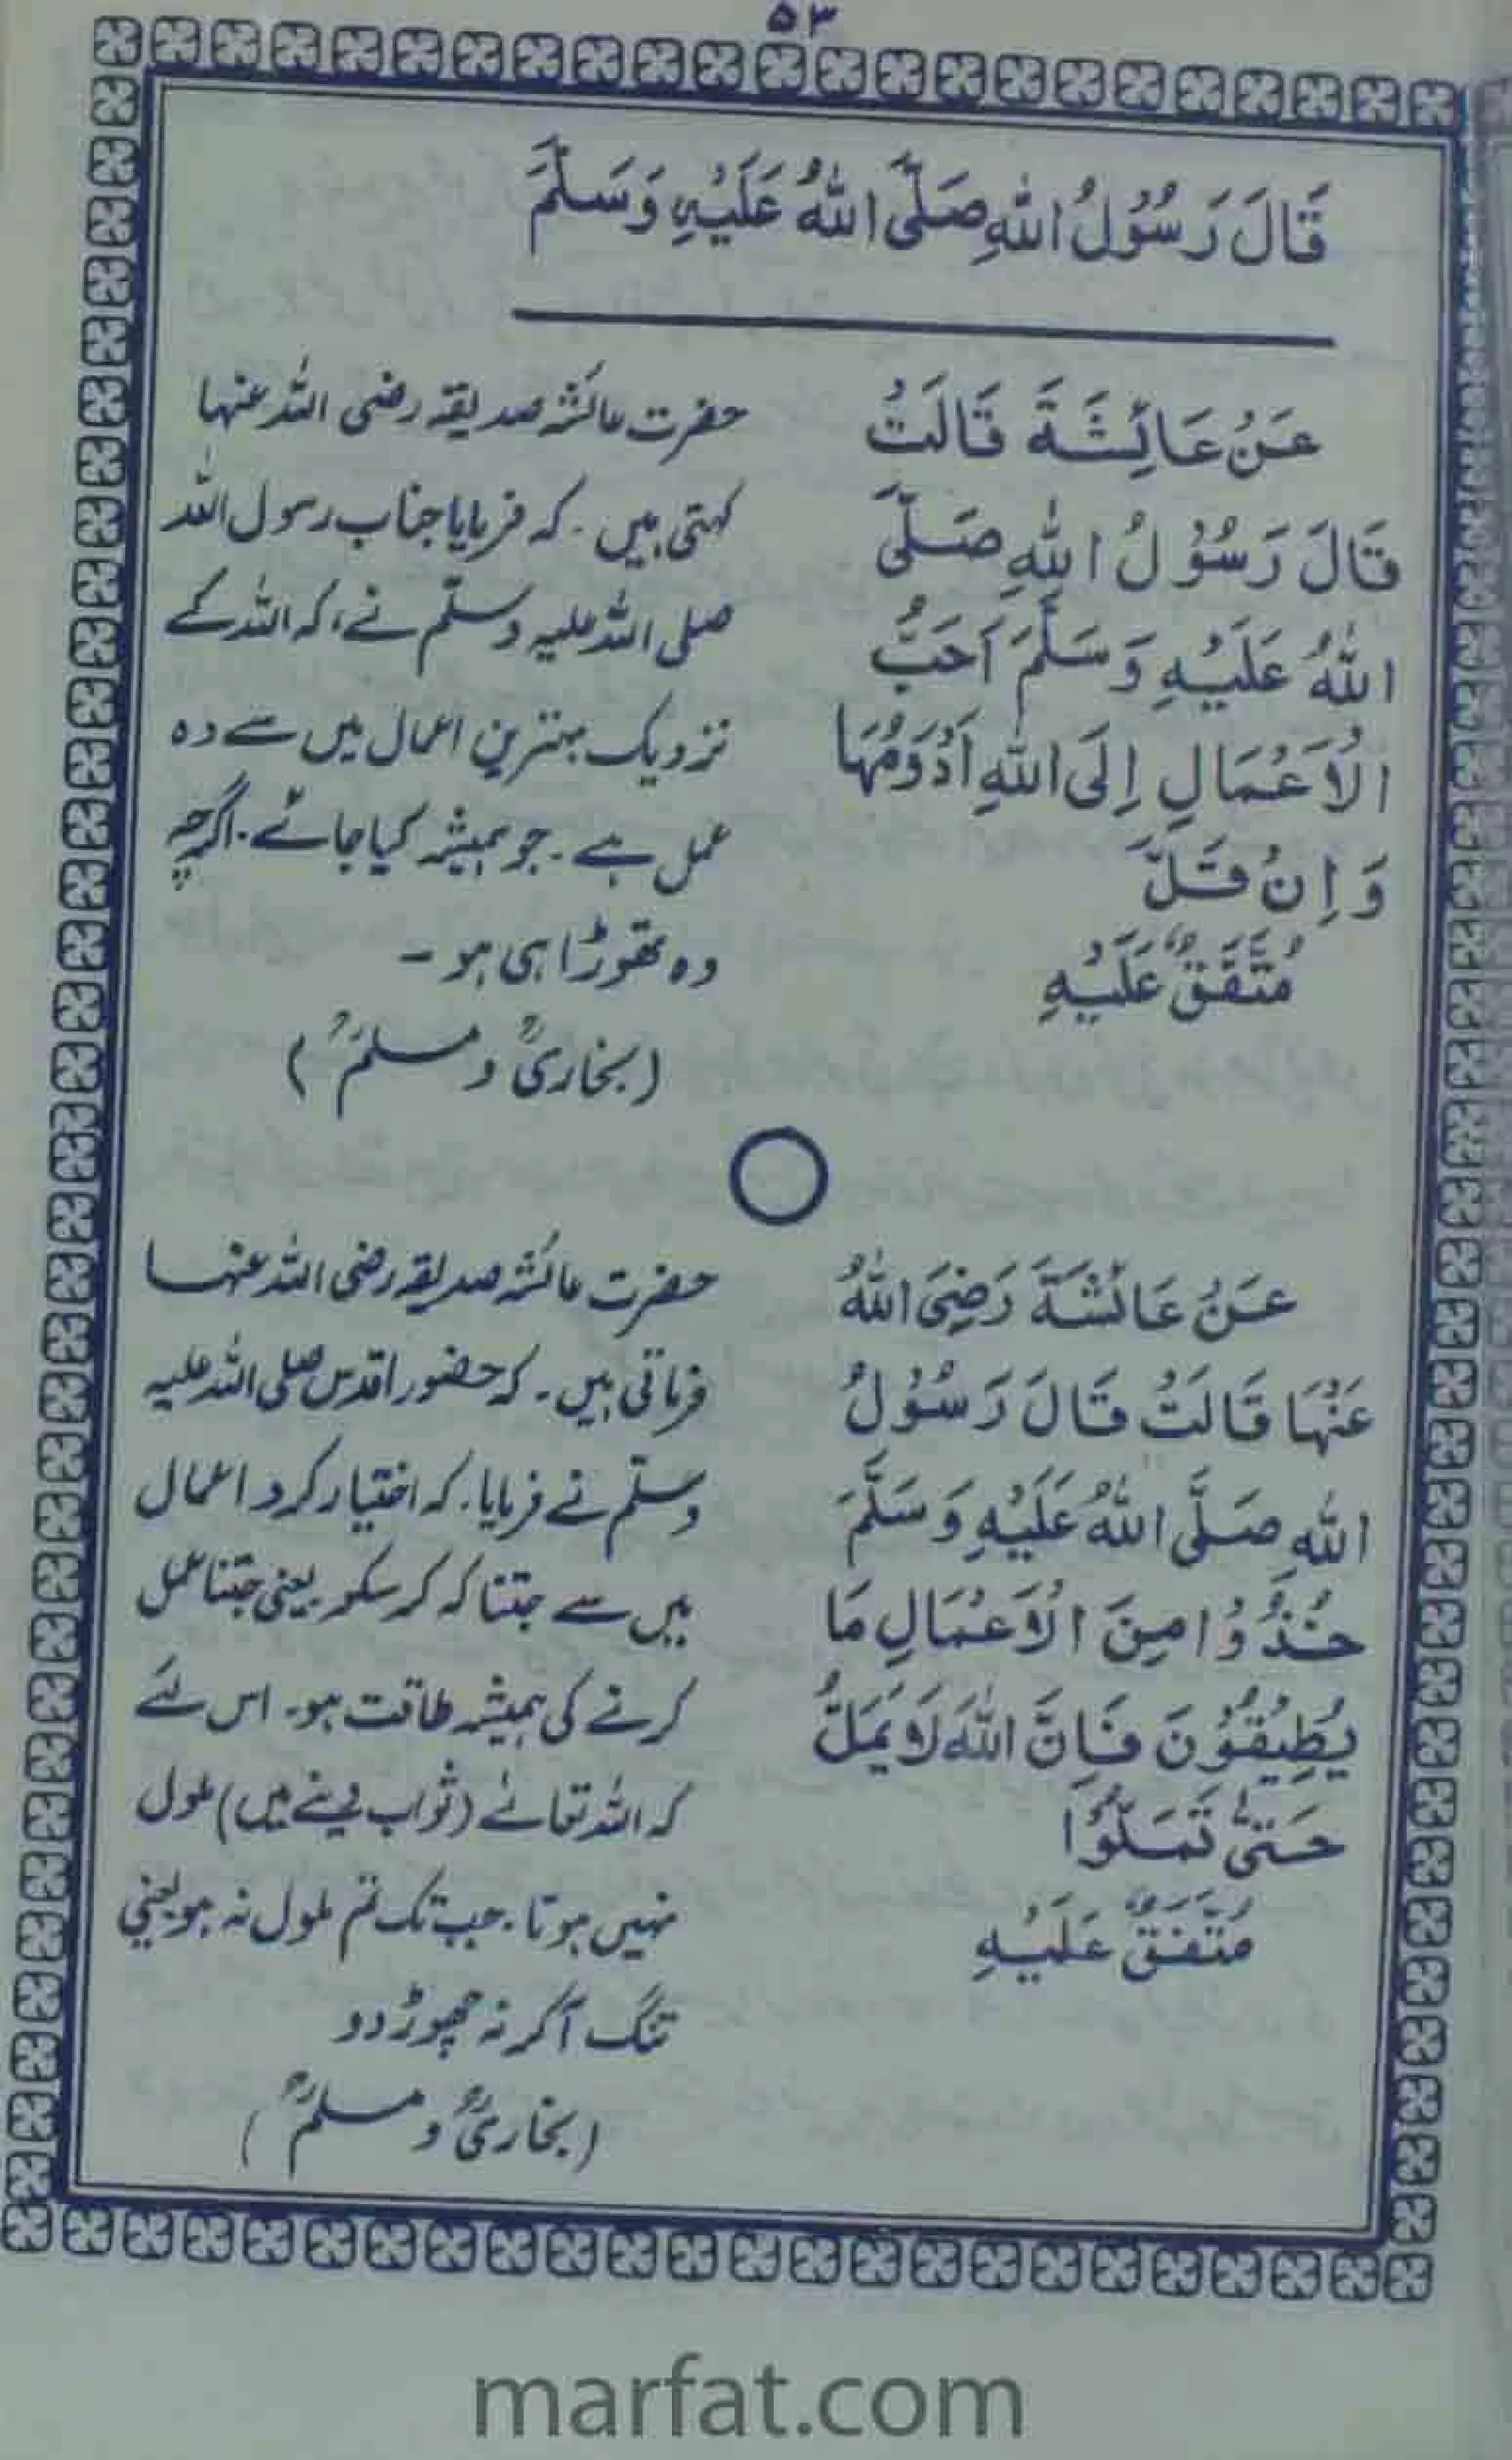 ۵۳
قَالَ رَسُوْلُ اللّٰهِ صَلَّى اللّٰهُ عَلَيْهِ وَسَلَّمَ
عَنْ عَائِشَةَ قَالَتْ
قَالَ رَسُوْلُ اللّٰهِ صَلَّى
اللّٰهُ عَلَيْهِ وَسَلَّمَ اَحَبُّ
الْاَعْمَالِ اِلَى اللّٰهِ اَدْوَمُهَا
وَاِنْ قَلَّ
مُتَّفَقٌ عَلَيْهِ
حضرت عائشہ صدیقہ رضی اللہ عنہا
کہتی ہیں۔ کہ فرمایا جناب رسول اللہ
صلی اللہ علیہ وسلّم نے، کہ اللہ کے
نزدیک بہترین اعمال میں سے وہ
عمل ہے۔ جو ہمیشہ کیا جائے۔ اگرچہ
وہ تھوڑا ہی ہو۔
(بخاریؒ و مسلمؒ)
عَنْ عَائشَةَ رَضِيَ اللّٰهُ
عَنْهَا قَالَتْ قَالَ رَسُوْلُ
اللّٰهِ صَلَّى اللّٰهُ عَلَيْهِ وَسَلَّمَ
خُذُوْا مِنَ الْاَعْمَالِ مَا
يُطِيْقُوْنَ فَاِنَّ اللّٰهَ لَا يَمَلُّ
حَتّٰى تَمَلُّوْا
مُتَّفَقٌ عَلَيْهِ
حضرت عائشہ صدیقہ رضی اللہ عنہا
فرماتی ہیں۔ کہ حضور اقدس صلی اللہ علیہ
وسلّم نے فرمایا۔ کہ اختیار کرو اعمال
میں سے جتنا کہ کر سکو یعنی جتنا عمل
کرنے کی ہمیشہ طاقت ہو۔ اس لئے
کہ اللہ تعالےٰ (ثواب دینے میں) ملول
نہیں ہوتا۔ جب تک تم ملول نہ ہو یعنی
تنگ آکر نہ چھوڑ دو
(بخاریؒ و مسلمؒ)
marfat.com